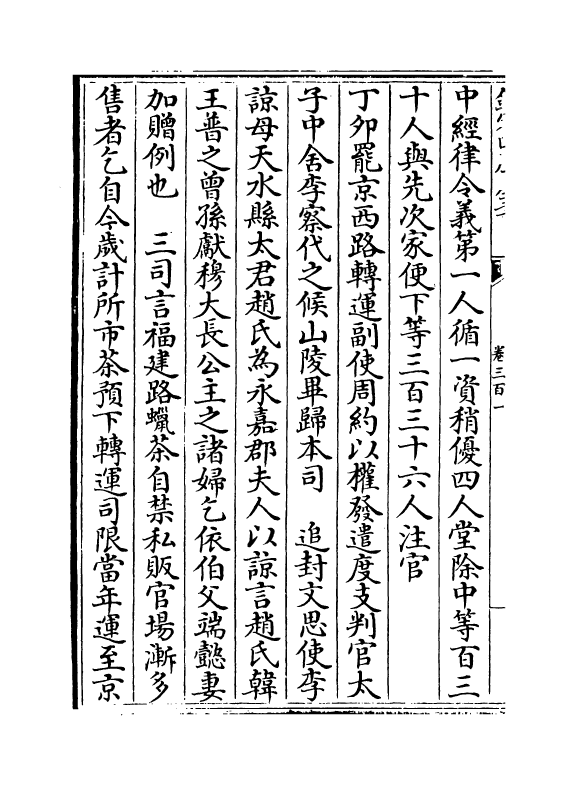 卷三百一
中經律令義第一人循一資稍優四人堂除中等百三
十人與先次家便下等三百三十六人注官
丁夘罷京西路轉運副使周約以權發遣度支判官太
子中舎李察代之候山陵畢歸本司　追封文思使李
諒母天水縣太君趙氏為永嘉郡夫人以諒言趙氏韓
王普之曾孫獻穆大長公主之諸婦乞依伯父端懿妻
加贈例也　三司言福建路蠟茶自禁私販官場漸多
售者乞自今歲計所市茶預下轉運司限當年運至京